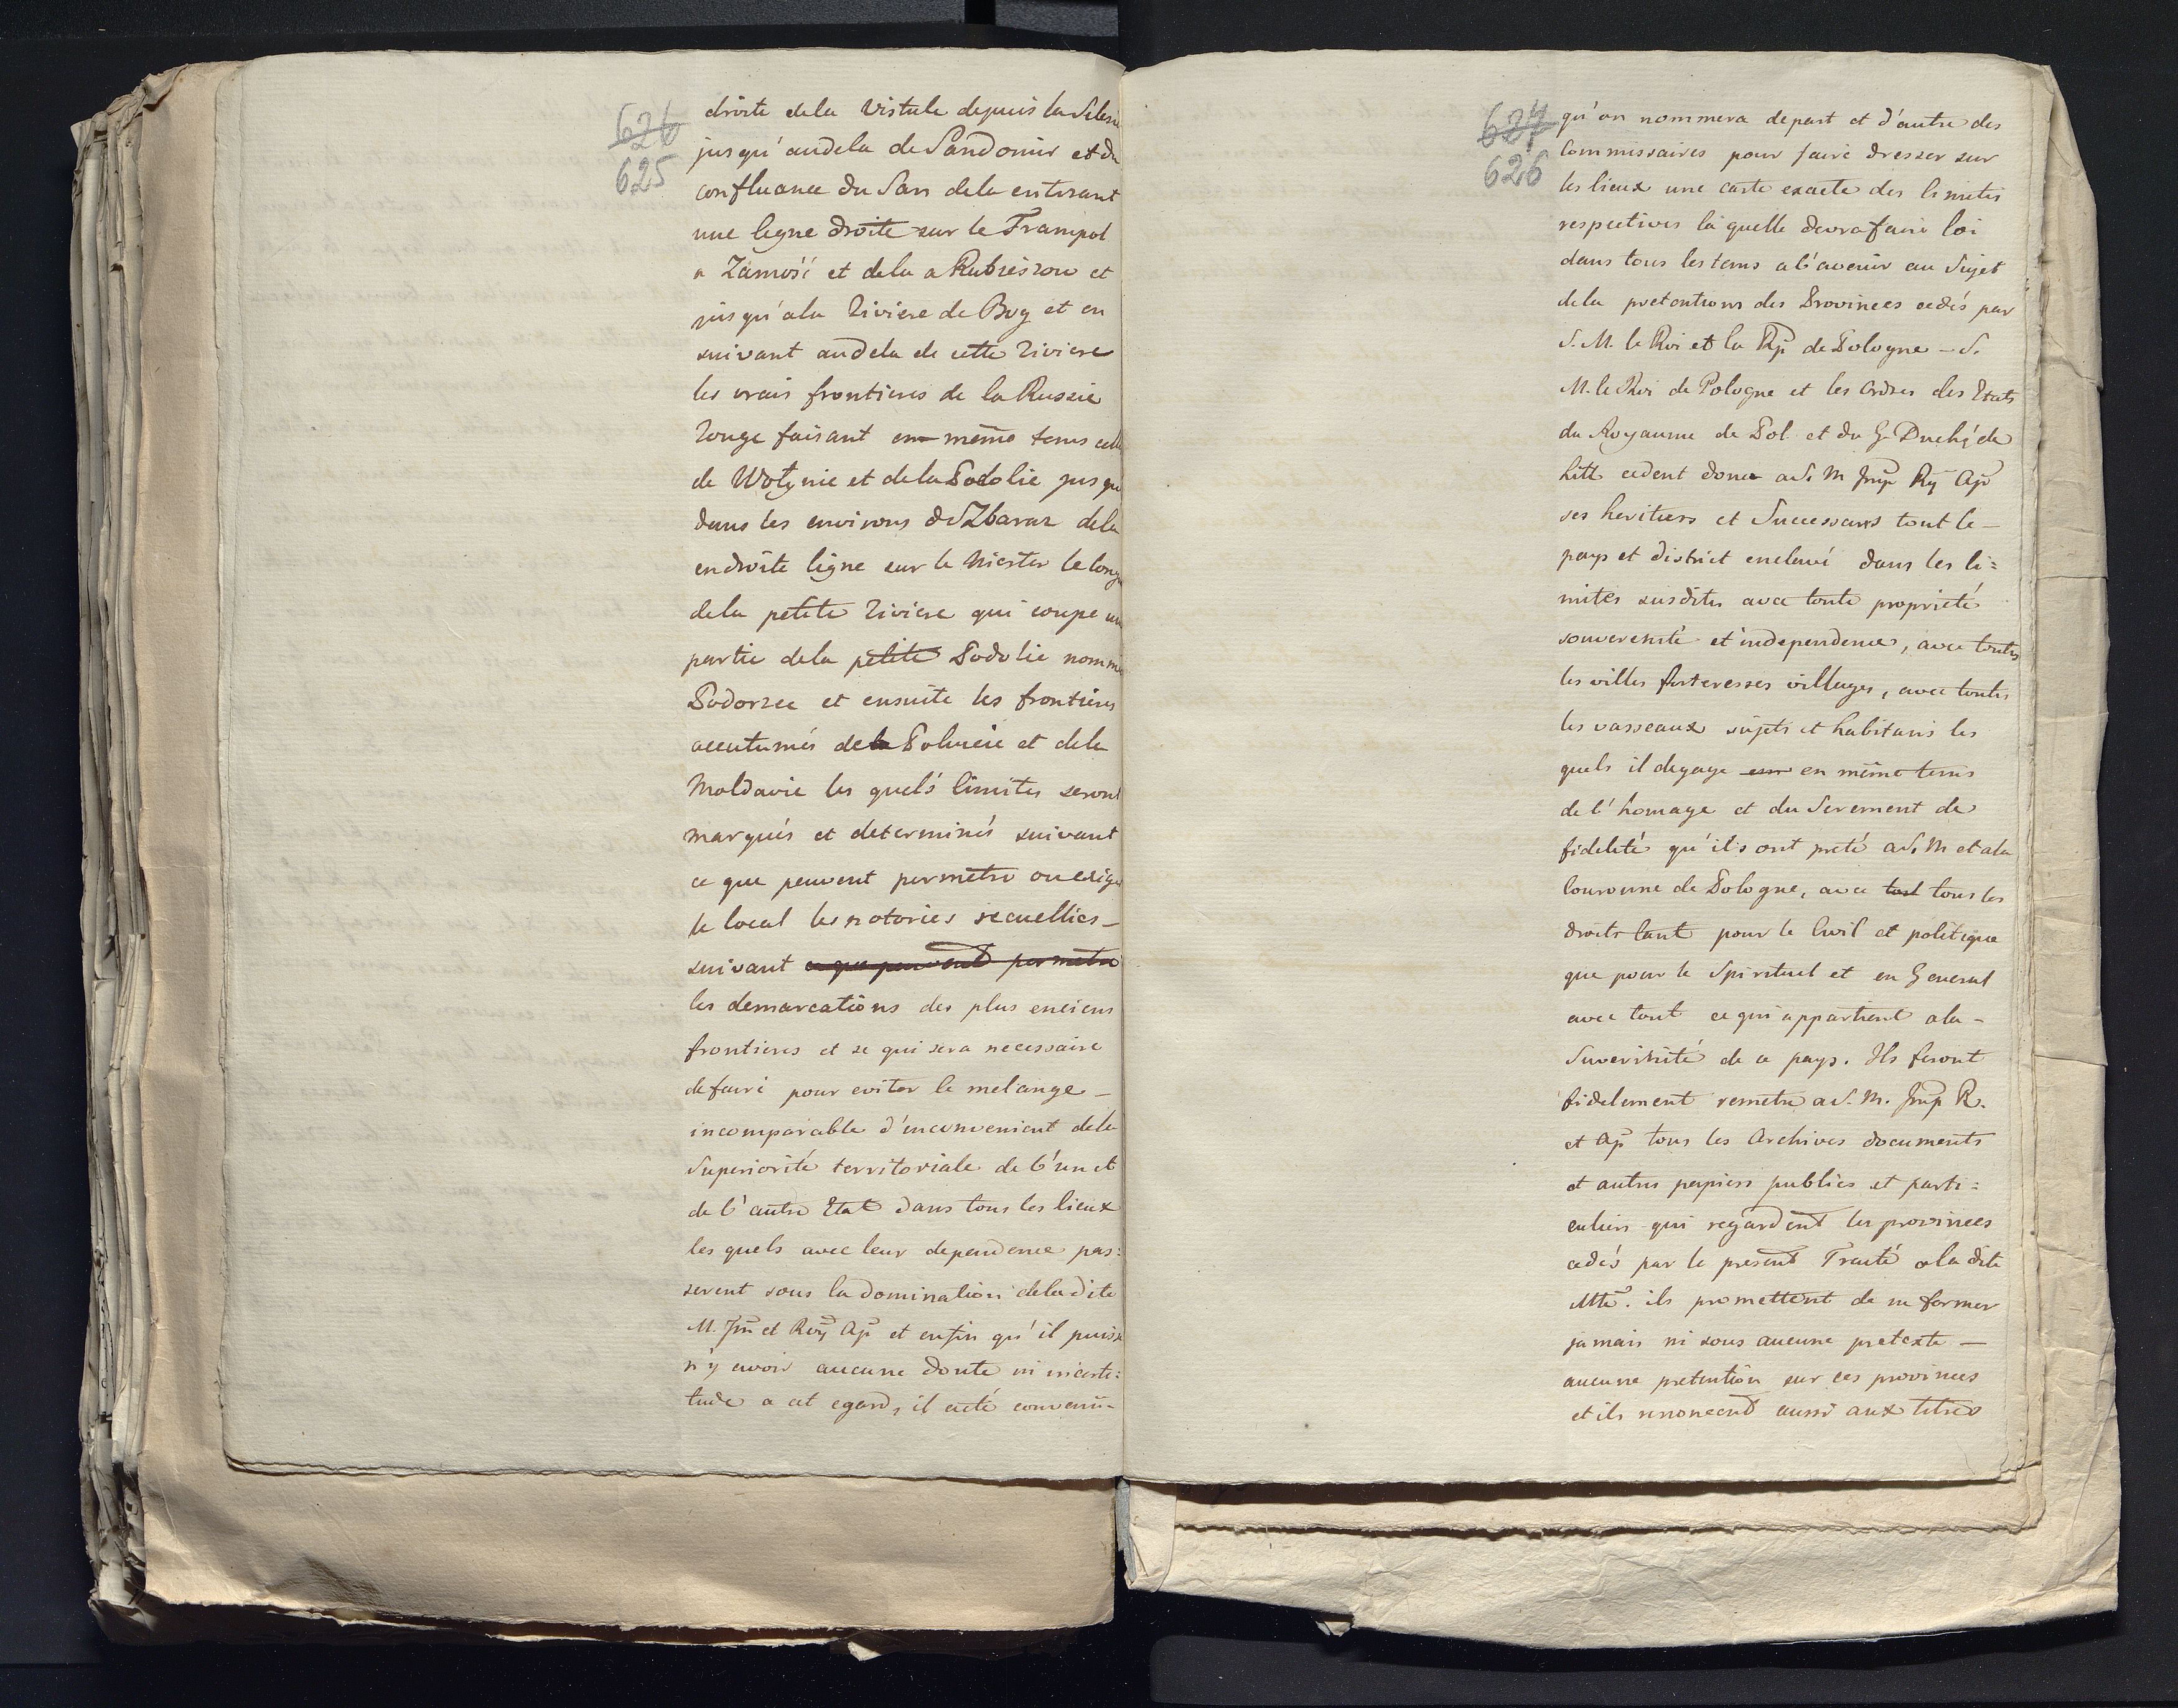 626
625
droite dela Vistule depuis la Silesie
jusqu'audela de Sandomir et du
confluance du San dela entirant
une ligne droite sur le Frampol
a Zamość et dela a Rubieszow et
jusqu'ala Riviere de Bug et en
suivant audela de cette Riviere
les vrais frontieres de la Russie
Rouge faisant en même tems celle
de Wołynie et dela Podolie jusque
dans les environs de Zbaraz dela
en droite ligne sur le Niester le long
dela petite Riviere qui coupe une
partie dela petite Podolie nommé
Podorzee et ensuite les frontieres
accutumés de la Pokucie et dela
Moldavie les quels limites seront
marqués et determinés suivant
ce que peuvent permetre ou exige
le local les notories recuellies –
suivant ce que peuvent permetre
les demarcations des plus enciens
frontieres et se qui sera necessaire
de faire pour eviter le melange –
incomparable d'inconvenient dela
Superiorité territoriale de l'un et
de l'autre Etat dans tous les lieux
les quels avec leur dependence pas:
serent sous la domination dela dite
M. Im et Roy Ap et enfin qu'il puisse
n'y avoir aucune doute ni incerti:
tude a cet egard, il eté convenu –
627
626
qu'on nommera depart et d'autre des
Commissaires pour faire dresser sur
les lieux une carte exacte des limites
respectives la quelle devra faire loi
dans tous les tems a l'avenir au Sujet
dela pretentions des Provinces cedés par
S. M. le Roi et la Rp de Pologne – S.
M. le Roi de Pologne et les Ordres des Etats
du Royaume de Pol. et du G. Duché de
Litt cedent donc a S. M Imp Ry Ap
ses heritiers et Successeurs tout le –
pays et district enclavé dans les li=
mites susdites avec toute proprieté
souverenité et independence, avec toutes
les villes forteresses villages, avec toutes
les vasseaux sujets et habitans les
quels il degage en même tems
de l'homage et du Serement de
fidelité qu'ils ont preté a S. M et ala
Couronne de Pologne, avec tout tous les
droits tant pour le Civil et politique
que pour le Spirituel et en General
avec tout ce qui appartient ala –
Suverenité de ce pays. Ils feront
fidelement remetre a S. M. Imp R.
et Ap tous les Archives documents
et autres papiers publics et parti=
culiers qui regardent les provinces
cedés par le present Traité a la dite
Mté. ils promettent de ne former
jamais ni sous aucune pretexte –
aucune pretention sur ces provinces
et ils renoncent aussi aux titres